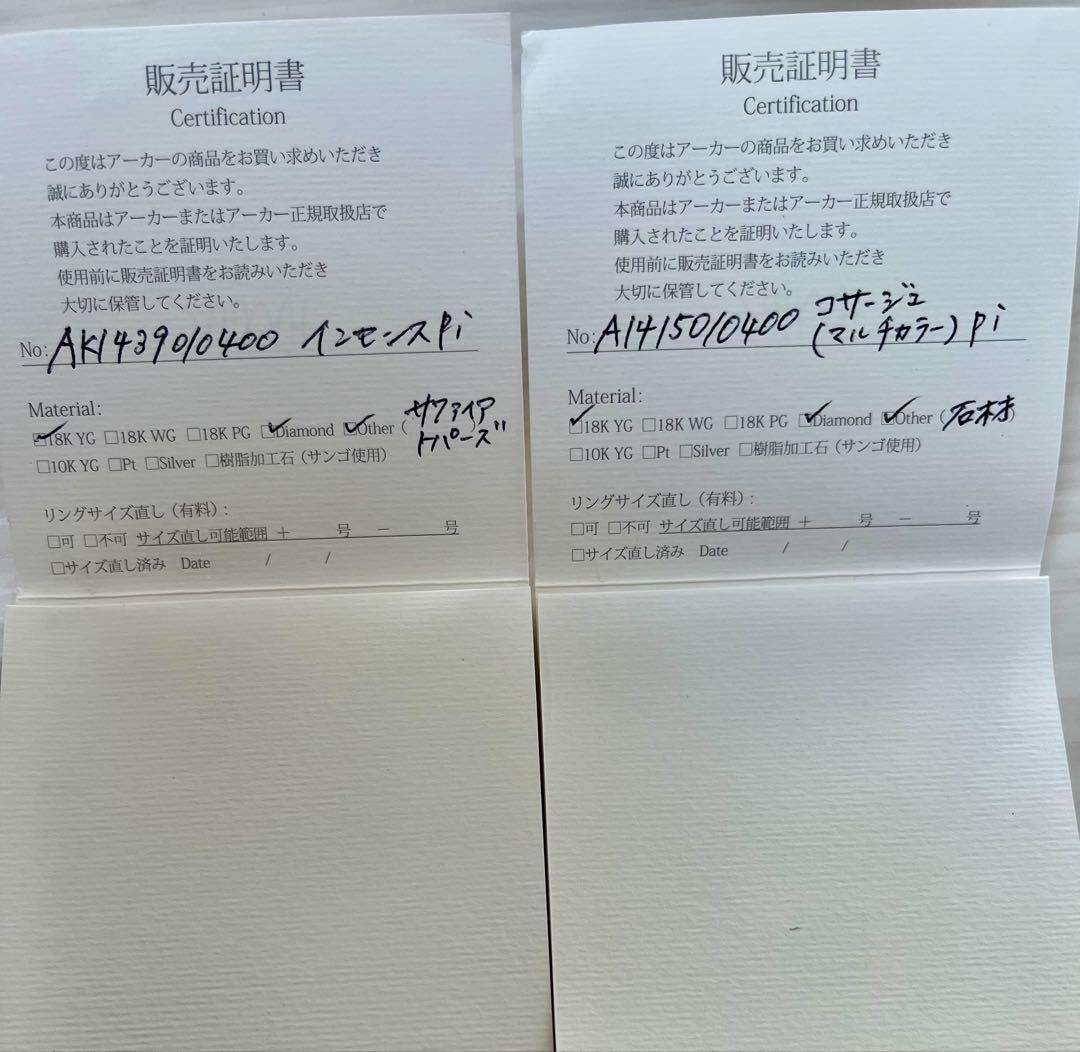 販売証明書
Certification
この度はアーカーの商品をお買い求めいただき
誠にありがとうございます。
本商品はアーカーまたはアーカー正規取扱店で
購入されたことを証明いたします。
使用前に販売証明書をお読みいただき
大切に保管してください。
No: AK14390/0400 インセンスPi
Material:
☑18K YG □18K WG □18K PG ☑Diamond ☑Other (サファイア
トパーズ
□10K YG □Pt □Silver □樹脂加工石 (サンゴ使用)
リングサイズ直し (有料) :
□可 □不可 サイズ直し可能範囲 + 号 − 号
□サイズ直し済み Date / /
販売証明書
Certification
この度はアーカーの商品をお買い求めいただき
誠にありがとうございます。
本商品はアーカーまたはアーカー正規取扱店で
購入されたことを証明いたします。
使用前に販売証明書をお読みいただき
大切に保管してください。
コサージュ
No: A14150/0400 (マルチカラー) Pi
Material:
☑18K YG □18K WG □18K PG ☑Diamond ☑Other (石材
□10K YG □Pt □Silver □樹脂加工石 (サンゴ使用)
リングサイズ直し (有料) :
□可 □不可 サイズ直し可能範囲 + 号 − 号
□サイズ直し済み Date / /